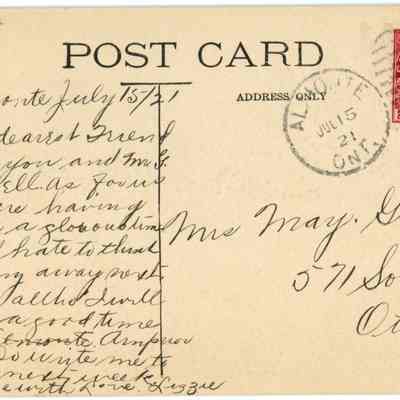 POST CARD
ADDRESS ONLY
ALMONTE
JUL 15
21
ONT.
onte July 15/21
dearest Friend
you, and Mr G.
ell. As for us
ere having
a glouoution
hate to think
ng away next
altho I will
a good time
Almonte Arnprior
So write me to
next week
with Love. Lizzie
Mrs May. G
571 So
Ot